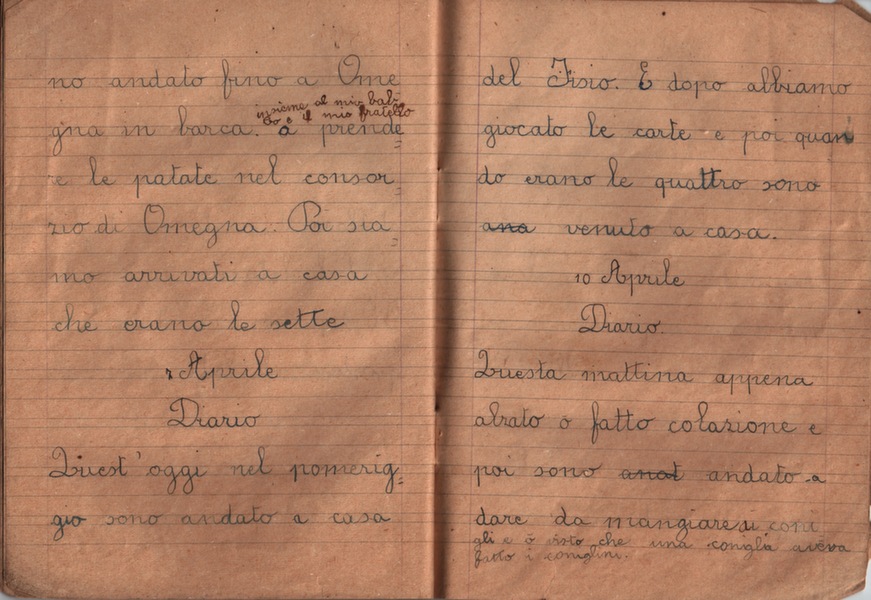 no andato fino a Ome
insieme al mio bab-
bo e il mio fratello
gna in barca. a prende=
e le patate nel consor=
zio di Omegna. Poi sia=
mo arrivati a casa
che erano le sette
7 Aprile
Diario
Quest'oggi nel pomerig=
gio sono andato a casa
del Tisio. E dopo abbiamo
giocato le carte e poi quan
do erano le quattro sono
ana venuto a casa.
10 Aprile
Diario.
Questa mattina appena
alzato ò fatto colazione e
poi sono andato a
dare da mangiare ai coni
gli e ò visto che una coniglia aveva
fatto i coniglini.